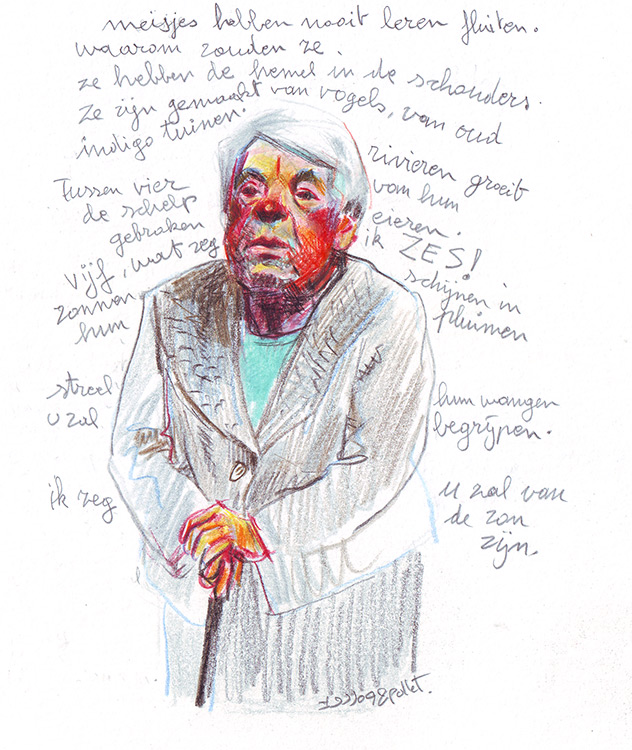 meisjes hebben nooit leren fluiten.
waarom zouden ze.
ze hebben de hemel in de schouders.
Ze zijn gemaakt van vogels, van oud
indigo tuinen.
Tussen vier rivieren groeit
de schelp van hun
gebroken eieren.
Vijf, wat zeg ik ZES!
zonnen schijnen in
hun pluimen
streel hun wangen
u zal begrijpen.
ik zeg u zal van
de zon
zijn.